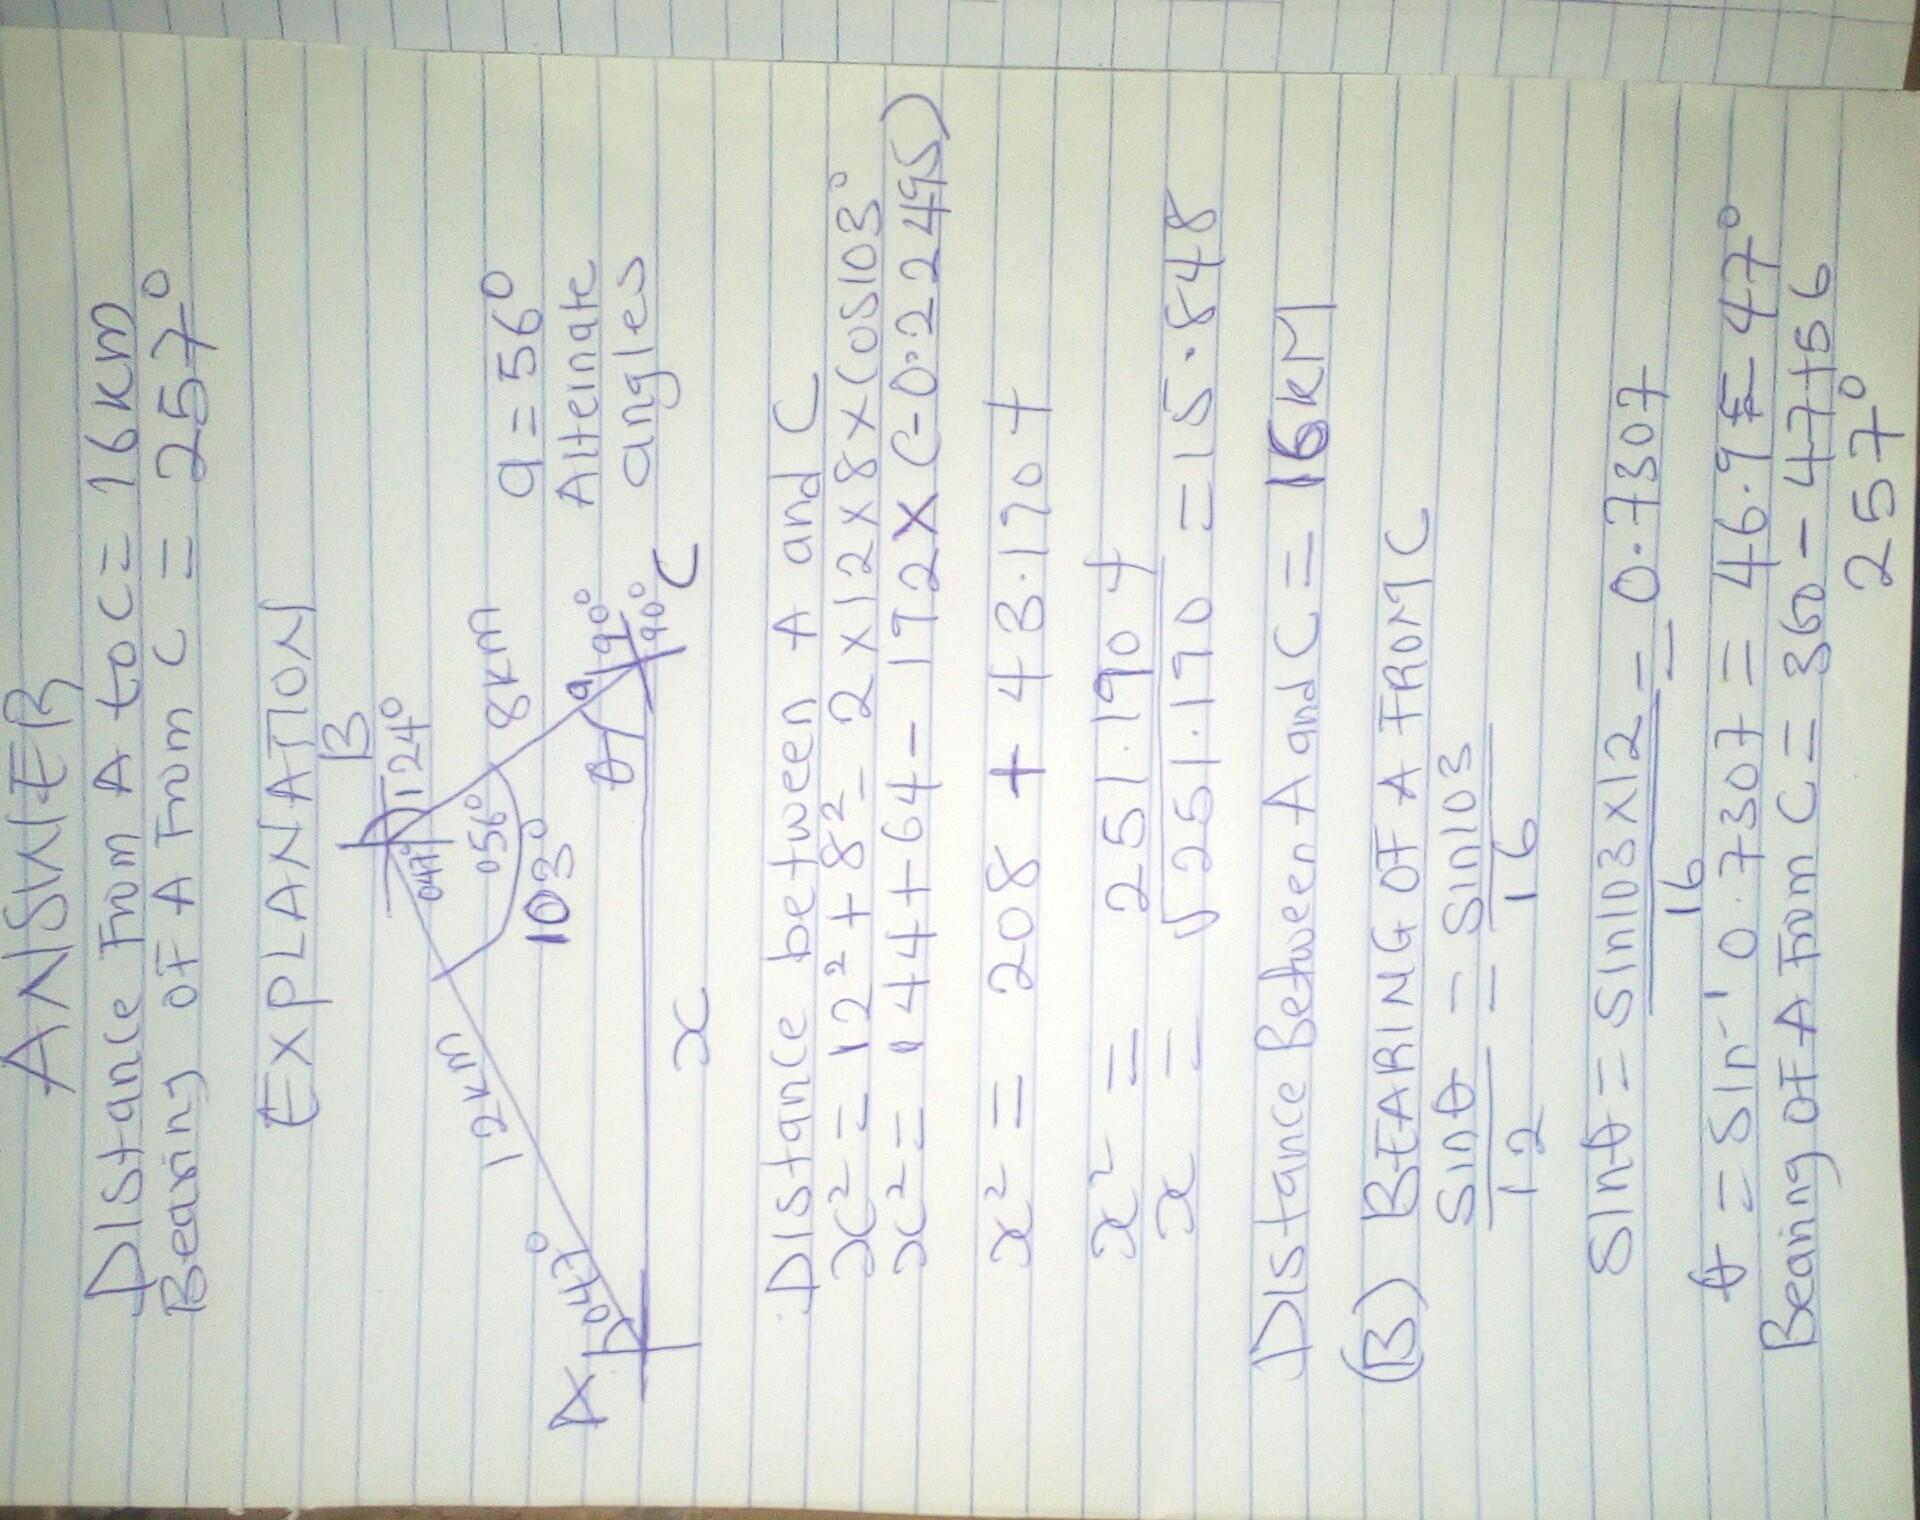 ANSWER
Distance From A to C = 16km
Bearing of A From C = 257°
EXPLANATION
B
124°
047°
056°
8km
103°
12km
a = 56°
Alternate
angles
A
047°
θ
a
90°
90°
C
x
Distance between A and C
x² = 12² + 8² - 2 x 12 x 8 x Cos103°
x² = 144 + 64 - 192 x (-0.22495)
x² = 208 + 43.1904
x² = 251.1904
x = √251.190 = 15.848
Distance Between A and C = 16kM
(B) BEARING OF A FROM C
Sinθ/12 = Sin103/16
Sinθ = Sin103x12/16 = 0.7307
θ = Sin⁻¹ 0.7307 = 46.9 = 47°
Bearing of A From C = 360 - 47+56
257°